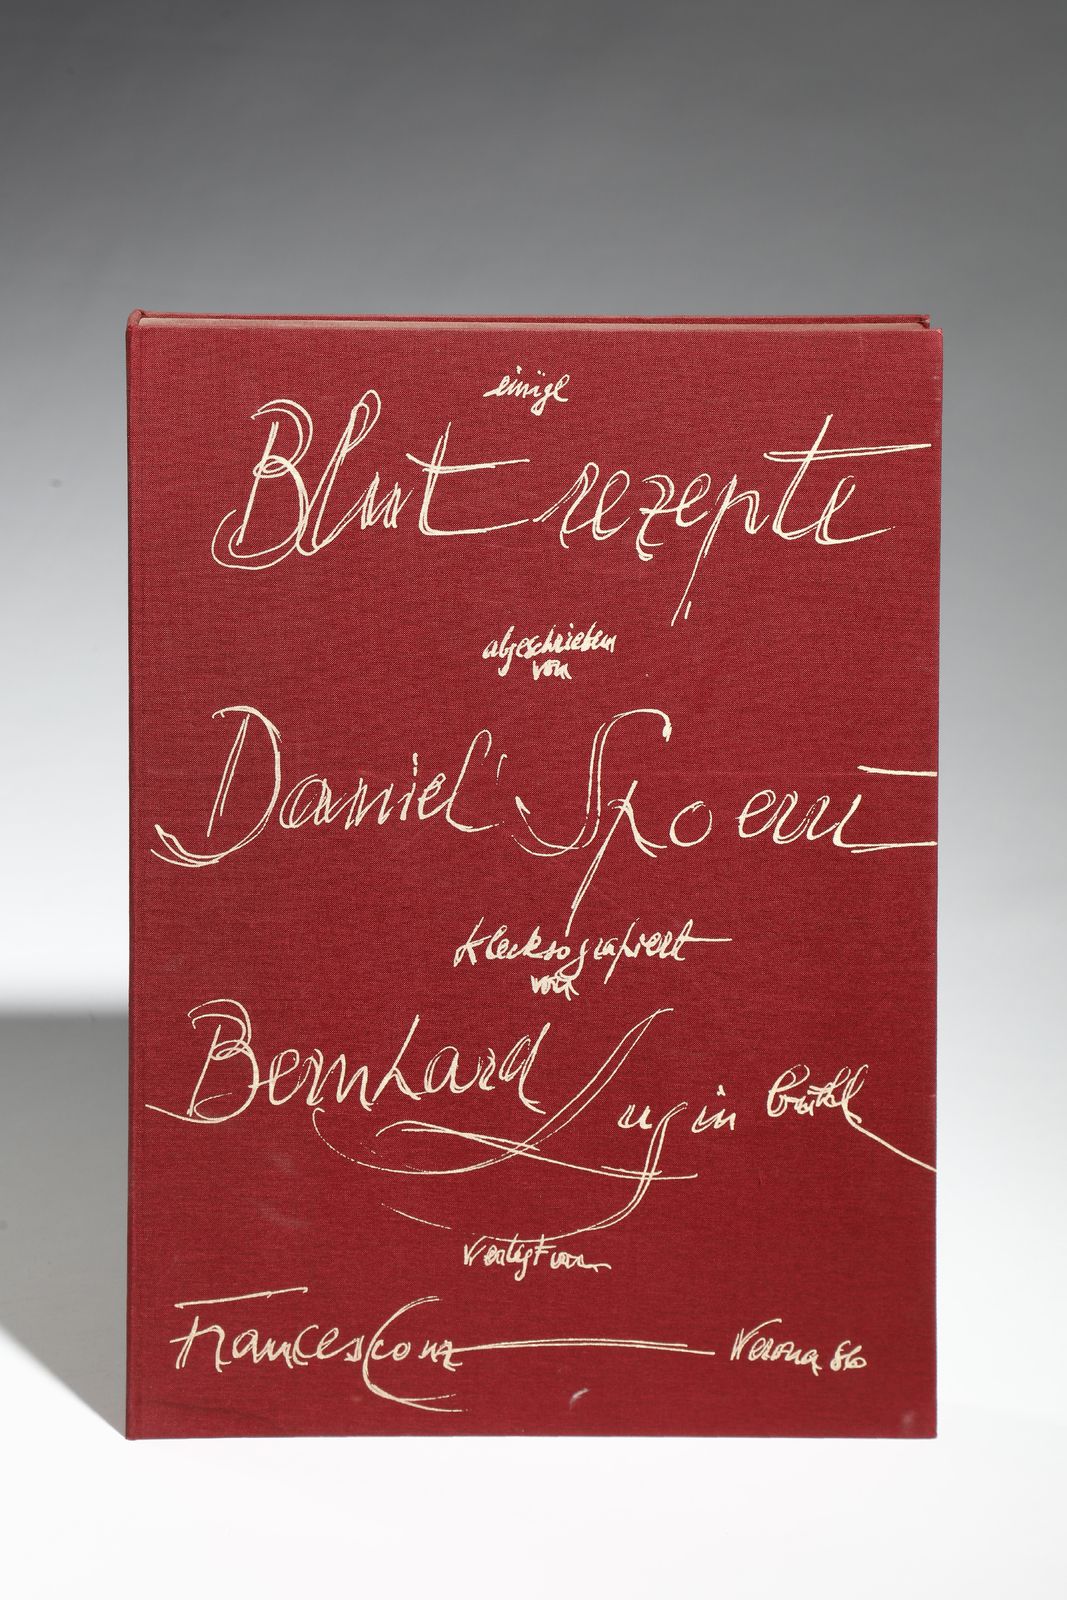 einige
Blut rezepte
abgeschrieben
von
Daniel Spoerri
klecksografiert
von
Bernhard Lug in brühl
verlegt von
Francesco Conz Verona 86